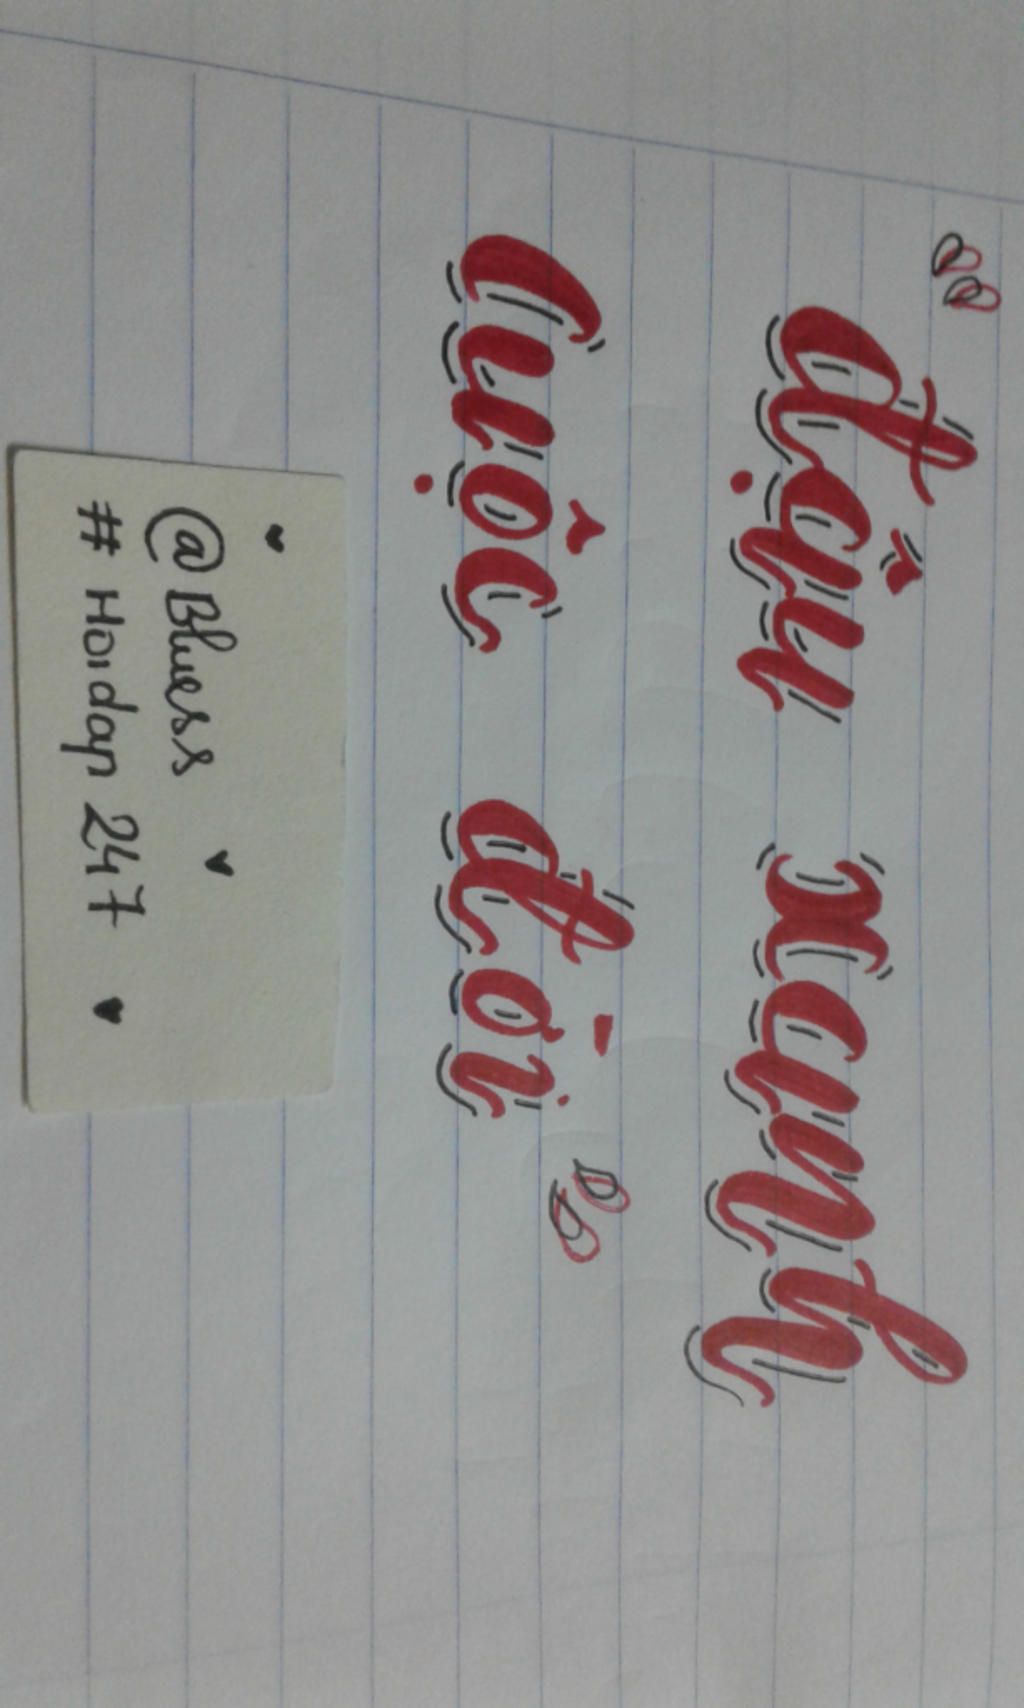 “đậu xanh
cuộc đời”
@Bluess
# Hoidap 247